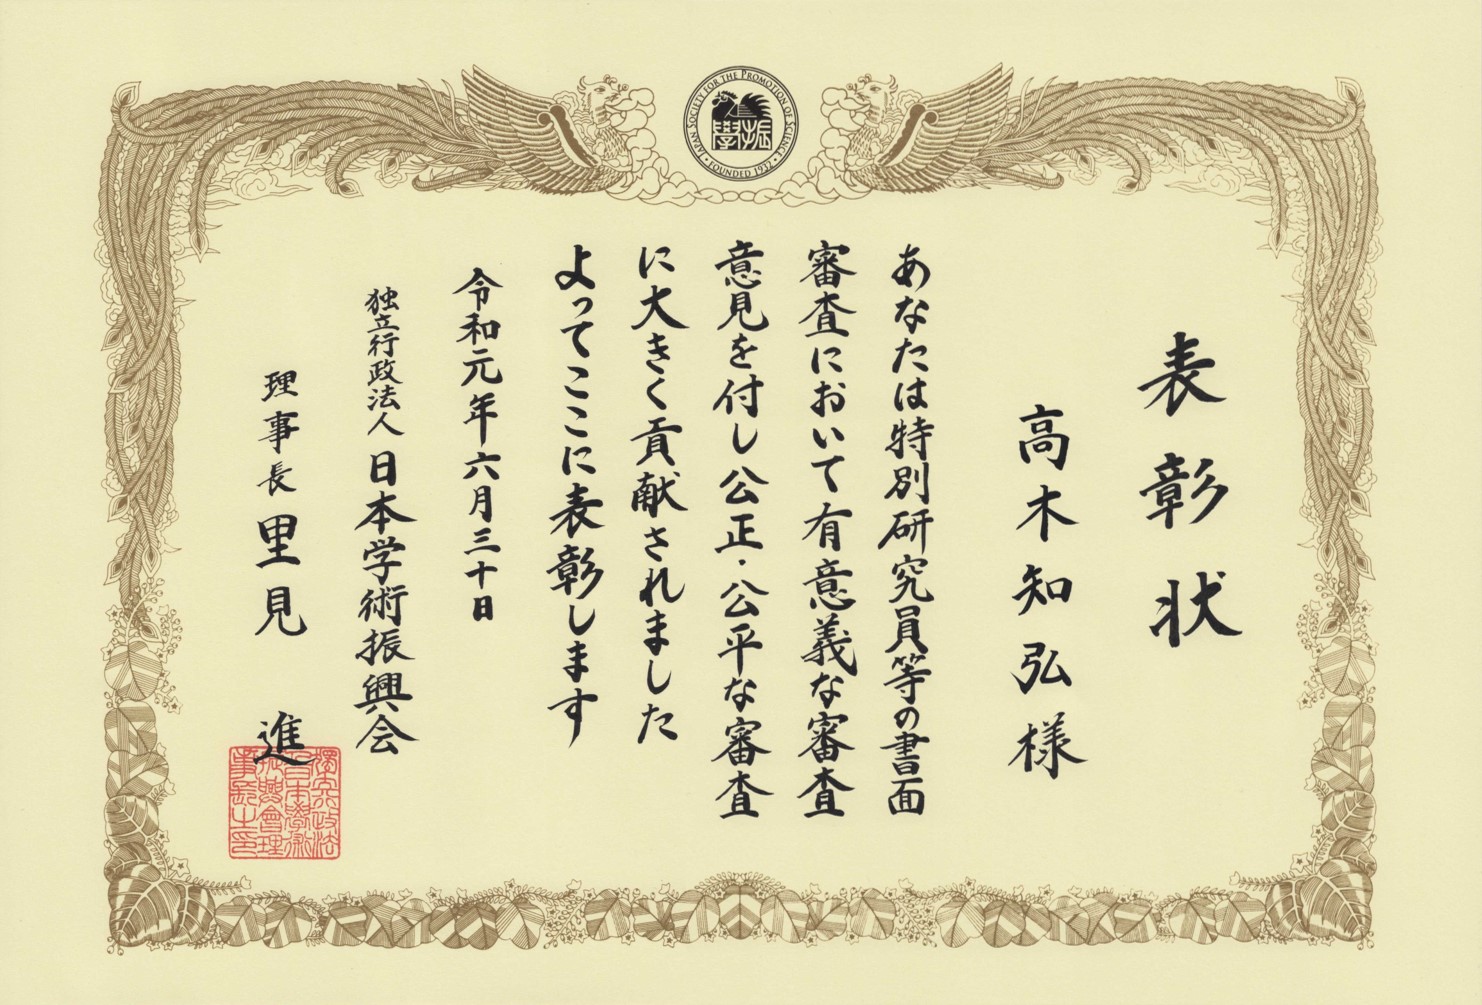 JAPAN SOCIETY FOR THE PROMOTION OF SCIENCE
FOUNDED 1932
学術振
表彰状
高木知弘様
あなたは特別研究員等の書面
審査において有意義な審査
意見を付し公正・公平な審査
に大きく貢献されました
よってここに表彰します
令和元年六月三十日
独立行政法人日本学術振興会
理事長 里見 進